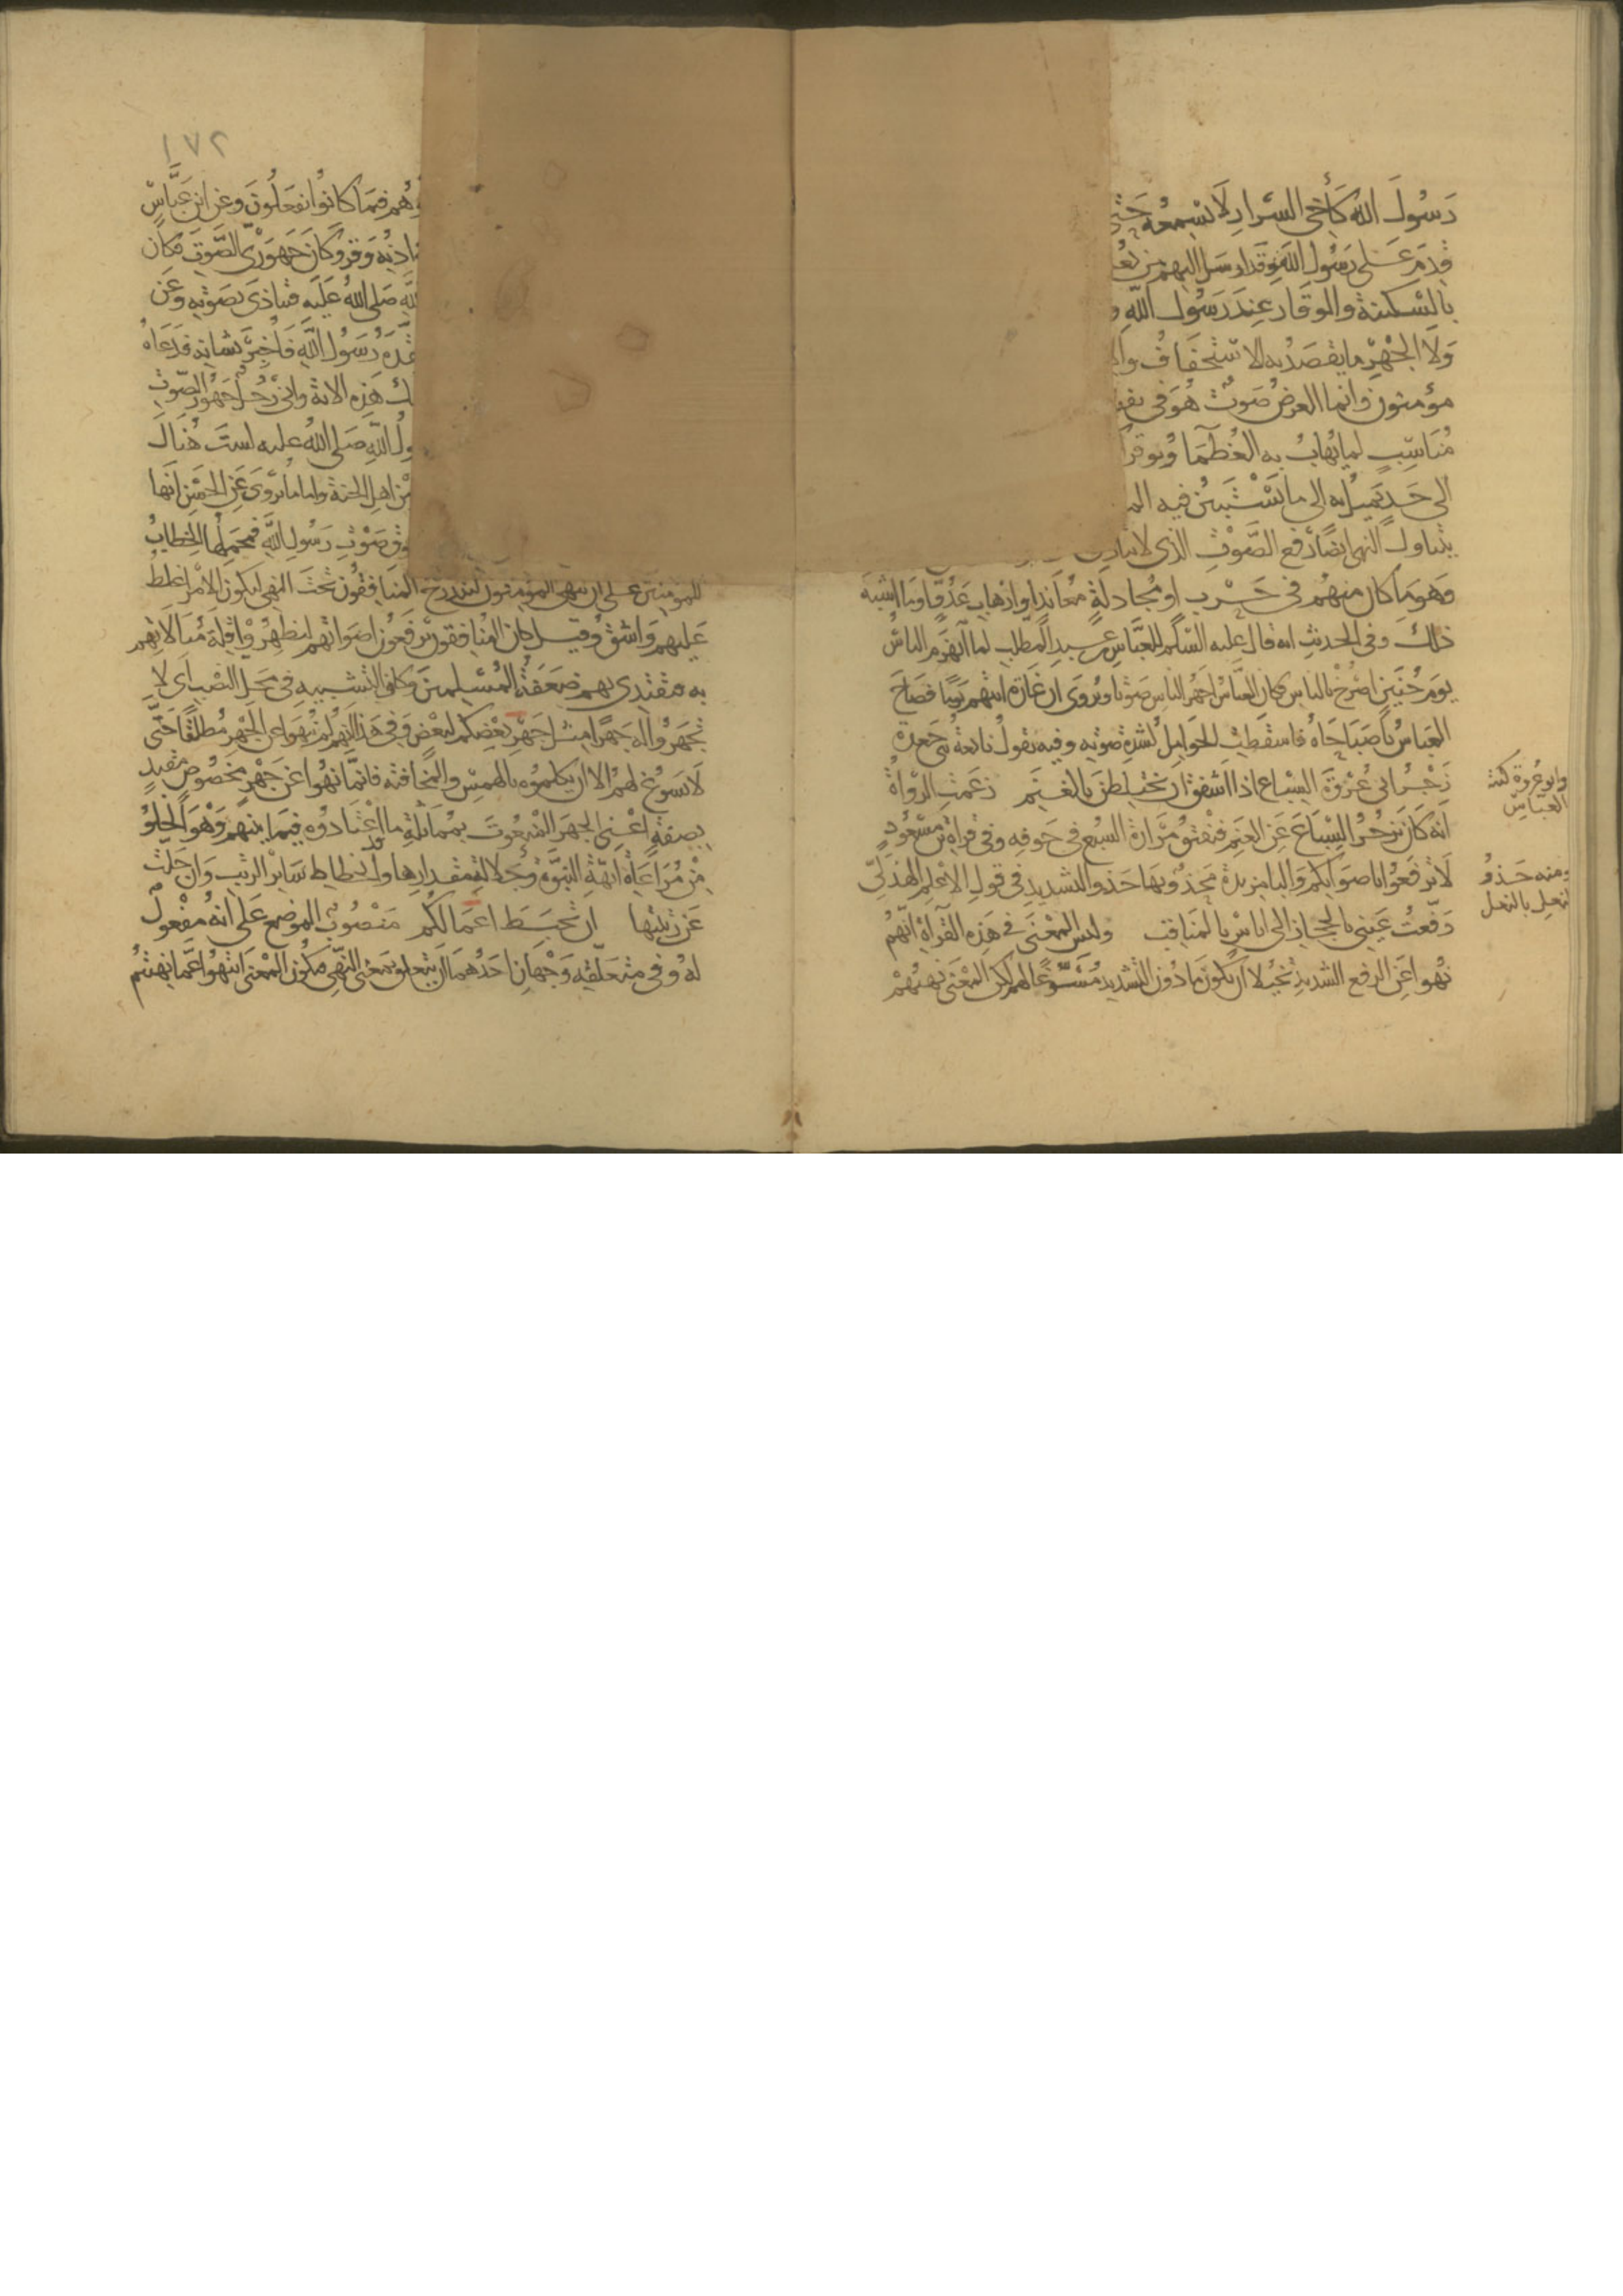 رَسُولَ اللهِ كَأَخِي السِّرَارِ لَا يُسْمِعُهُ حَتَّى
قدم على رسول الله وفد ارسل اليهم من
بالسكينة والوقار عند رسول الله
ولا الجهر ما يقصد به الاستخفاف
مؤمنون وانما الغرض صوت هو في
مناسب لما يهاب به العظما ويوقر
الى حد يميل به الى ما يستبين فيه
يتناول النهى ايضا رفع الصوت الذى لا يتاذى
وهو ما كان منهم في حرب او مجادلة معاند او ارهاب عدو او ما اشبه
ذلك وفى الحديث انه قال عليه السلم للعباس بن عبد المطلب لما انهزم الناس
يوم حنين اصرخ بالناس وكان العباس اجهر الناس صوتا ويروى ان غارة اتتهم يوما فصاح
العباس يا صباحاه فاسقطت الحوامل لشدة صوته وفيه يقول نابغة بنى جعدة
زجر ابى عروة السباع اذا اشفق ان يختلطن بالغنم زعمت الرواة
انه كان يزجر السباع عن الغنم فيفتق مرارة السبع في جوفه وفى قراة ابن مسعود
لا ترفعوا باصواتكم والبا مزيدة محذو بها حذو التشديد في قول الاعلم الهذلى
رفعت عينى بالحجاز الى اناس بالمناقب وليس المعنى في هذه القراة انهم
نهوا عن الرفع الشديد تخيلا ان يكون ما دون التشديد مسوغا لهم ولكن المعنى نهيهم
وابو عروة كنية
العباس
ومنه حذو
النعل بالنعل
١٧٢
هم فيما كانوا يفعلون وعن ابن عباس
اذنه وقر وكان جهورى الصوت فكان
صلى الله عليه فيتاذى بصوته وعن
رسول الله فاخبر بشانه فدعاه
هذه الاية وانى رجل جهير الصوت
الله صلى الله عليه لست هناك
من اهل الجنة واما ما يروى عن الحسن انها
صوت رسول الله فمحملها الخطاب
للمؤمنين على ان ينهى المؤمنون ليندرج المنافقون تحت النهى ليكون الامر اغلظ
عليهم واشق وقيل كان المنافقون يرفعون اصواتهم ليظهروا قلة مبالاتهم
به فيقتدى بهم ضعفة المسلمين وكاف التشبيه في محل النصب اى لا
تجهروا له جهرا مثل جهر بعضكم لبعض وفى هذا انهم لم ينهوا عن الجهر مطلقا حتى
لا يسوغ لهم الا ان يكلموه بالهمس والمخافتة فانما نهوا عن جهر مخصوص مقيد
بصفة اعنى الجهر المنعوت بمماثلة ما قد اعتادوه فيما بينهم وهو الخلو
من مراعاة ابهة النبوة وجلالة مقدارها وانحطاط سائر الرتب وان جلت
عن رتبتها ان تحبط اعمالكم منصوب الموضع على انه مفعول
له وفى متعلقه وجهان احدهما ان يتعلق بمعنى النهى فيكون المعنى انتهوا عما نهيتم